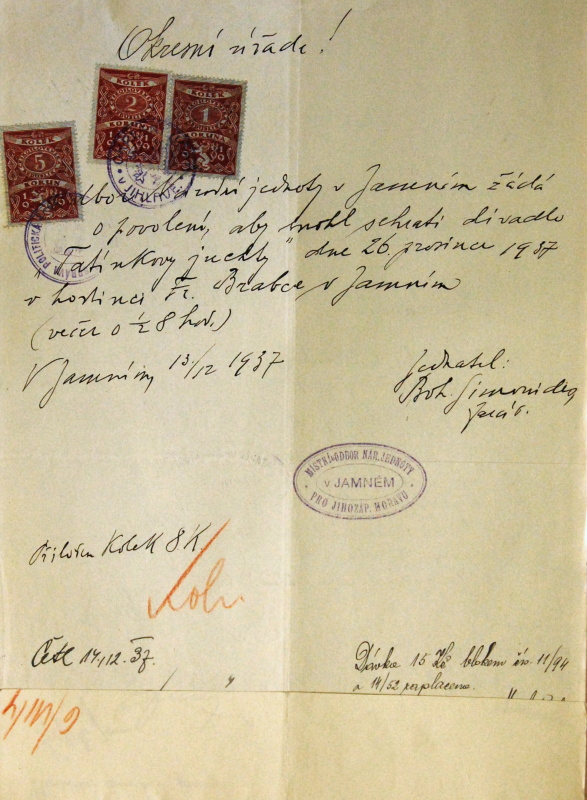 Okresní úřade!
KOLEK
2
KORUNY
KOLEK
1
KORUNA
KOLEK
5
KORUN
V JIHLAVĚ
SPRÁVA POLITICKÁ
Odbor Národní jednoty v Jamném žádá
o povolení, aby mohl sehrati divadlo
"Tatínkovy juchty" dne 26. prosince 1937
v hostinci Fr. Brabce v Jamném
(večer o ½ 8 hod.)
V Jamném 13/12 1937
Jednatel:
Boh. Simonides
MÍSTNÍ ODBOR NÁR. JEDNOTY
v JAMNÉM
PRO JIHOZÁP. MORAVU
Přiložen Kolek 8 K.
Četl 14./12. 37.
Dávka 15 Kč blokem čís. 11/94
a 14/52 zaplacena.